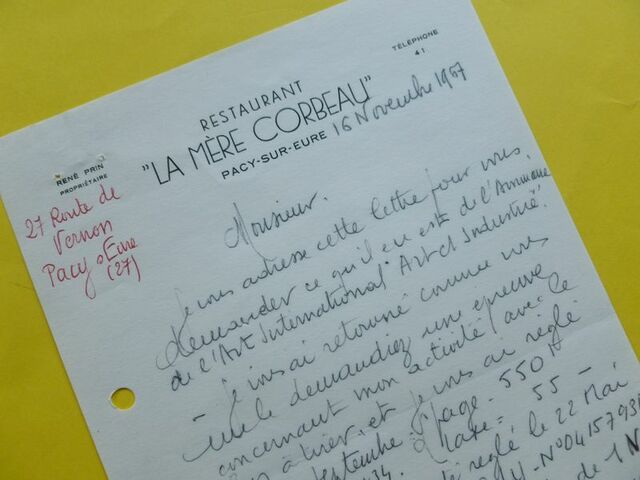 TÉLÉPHONE
41
RESTAURANT
"LA MÈRE CORBEAU"
PACY-SUR-EURE 16 Novembre 1967
RENÉ PRIN
PROPRIÉTAIRE
27 Route de
Vernon
Pacy s/Eure
(27)
Monsieur.
Je vous adresse cette lettre pour vous
demander ce qu'il en est de l'Annuaire
de l'Art International "Art et Industrie".
Je vous ai retourné comme vous
me le demandiez une épreuve
concernant mon activité avec le
à tirer, et je vous ai réglé
Septembre la page - 550 F
Taxe = 55 -
réglé le 22 Mai
de 1